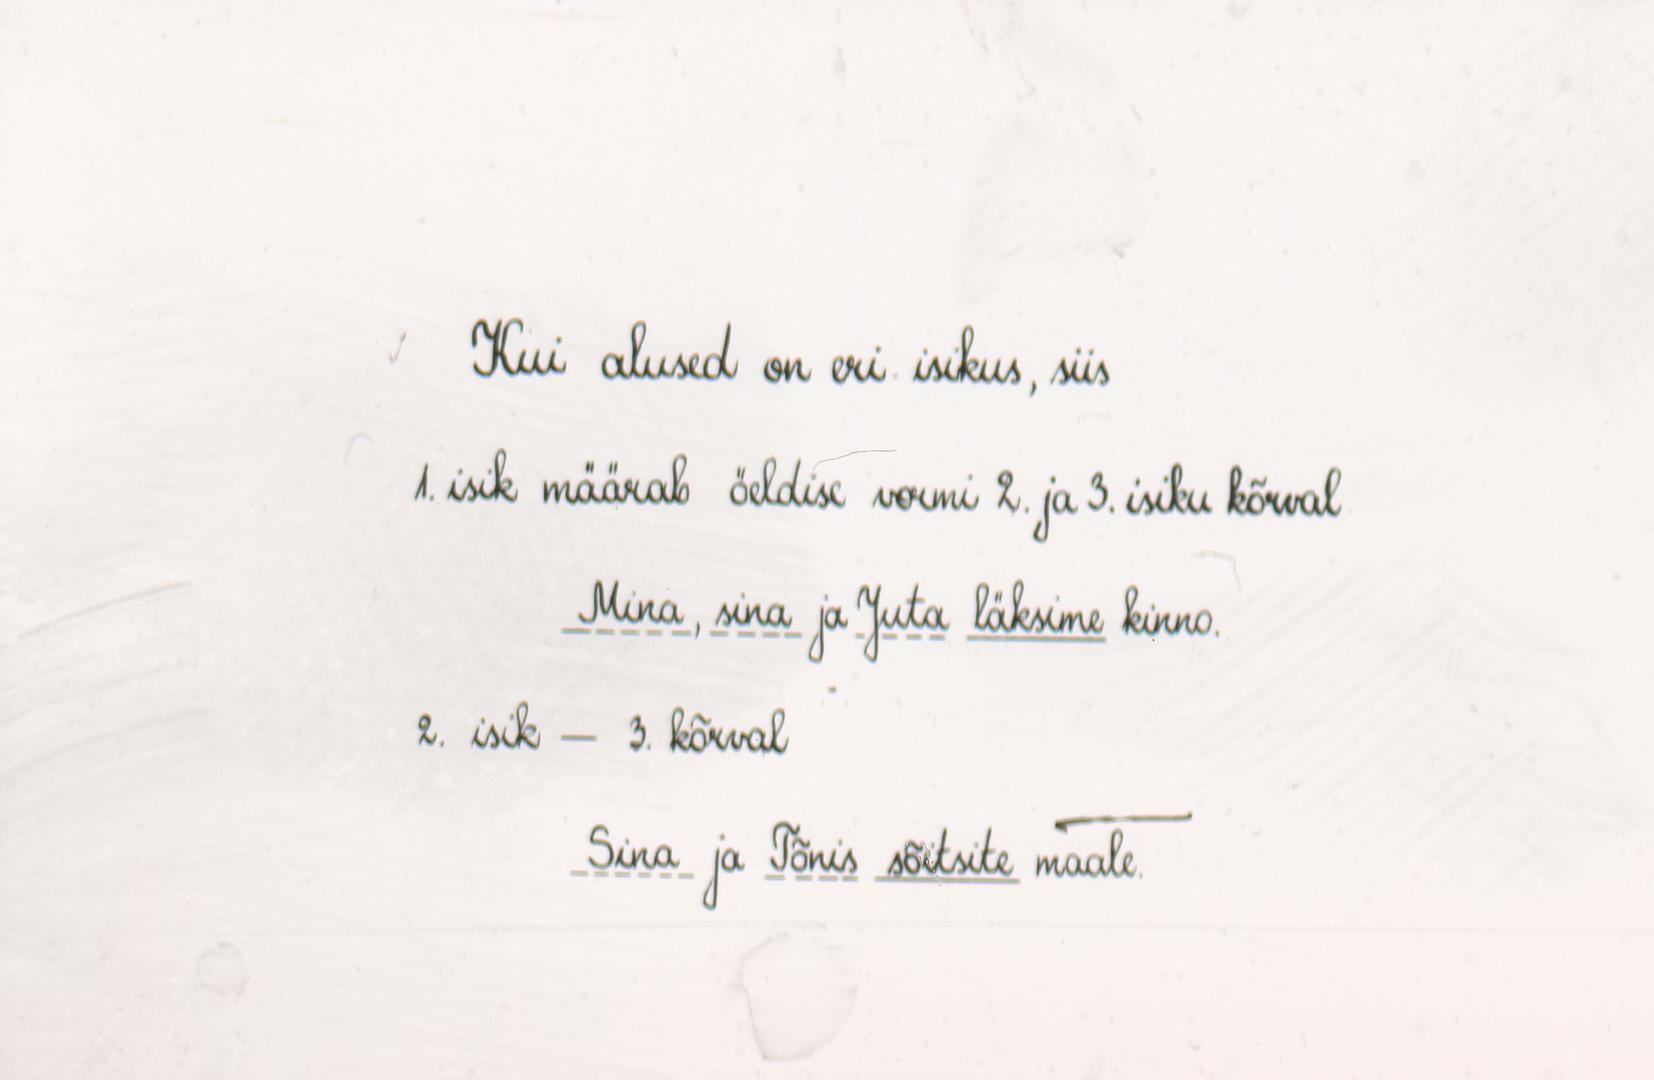 Kui alused on eri isikus, siis
1. isik määrab öeldise vormi 2. ja 3. isiku kõrval
Mina, sina ja Juta läksime kinno.
2. isik — 3. kõrval
Sina ja Tõnis sõitsite maale.